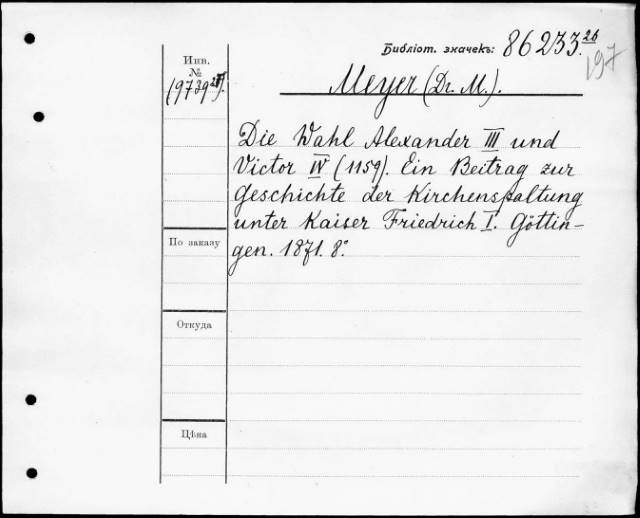 Библіот. значекъ: 86233.26
197
Инв.
№
Meyer (Dr. M.).
Die Wahl Alexander III und
Victor IV (1159). Ein Beitrag zur
Geschichte der Kirchenspaltung
unter Kaiser Friedrich I. Göttin-
gen. 1871. 8°.
По заказу
Откуда
Цѣна